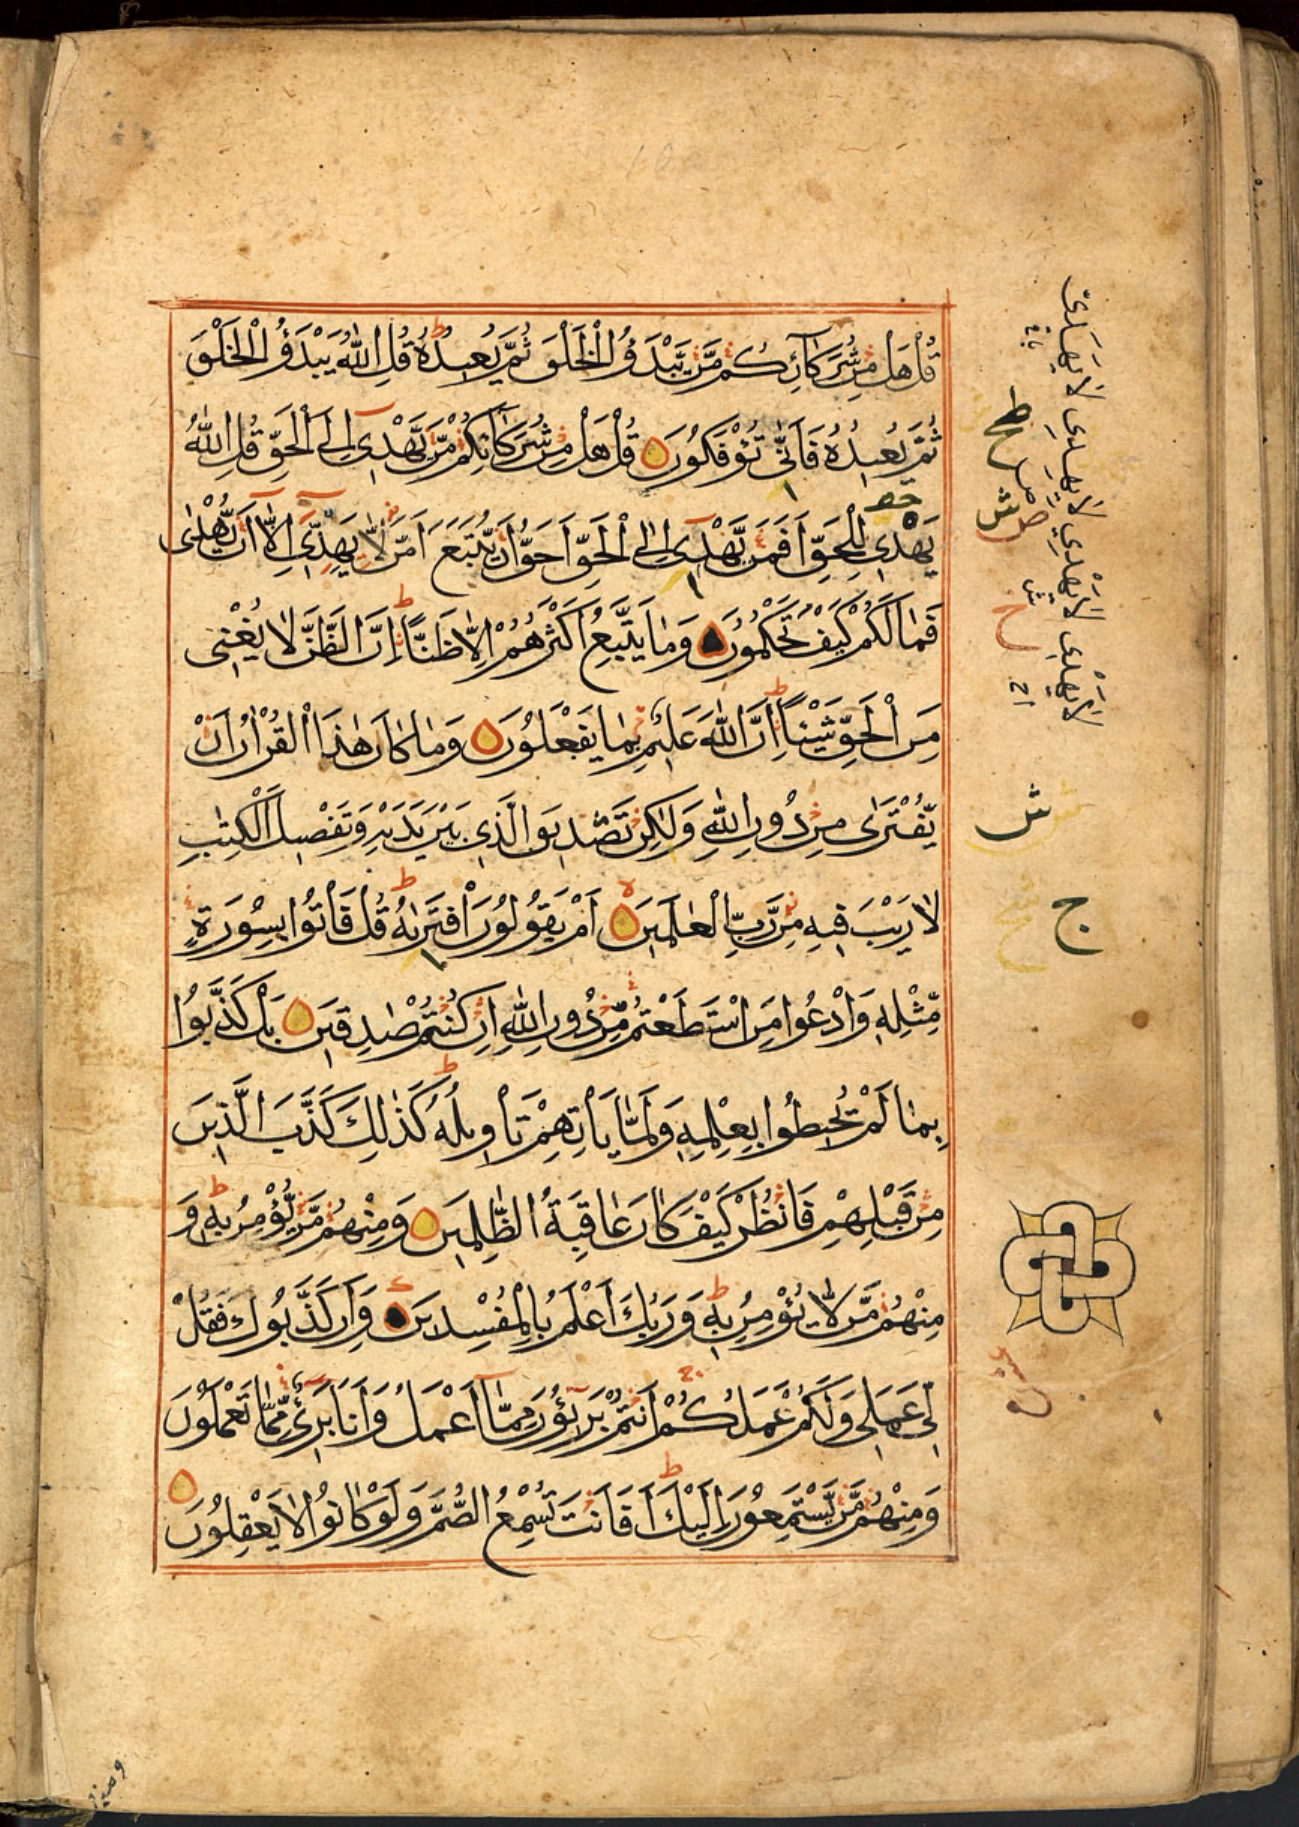 قُلْ هَلْ مِنْ شُرَكَآئِكُمْ مَّنْ يَّبْدَؤُا الْخَلْقَ ثُمَّ يُعِيدُهُ ط قُلِ اللّٰهُ يَبْدَؤُا الْخَلْقَ
ثُمَّ يُعِيدُهُ فَاَنّٰى تُؤْفَكُوْنَ قُلْ هَلْ مِنْ شُرَكَآئِكُمْ مَّنْ يَّهْدِىٓ اِلَى الْحَقِّ قُلِ اللّٰهُ
يَهْدِى لِلْحَقِّ اَفَمَنْ يَّهْدِىٓ اِلَى الْحَقِّ اَحَقُّ اَنْ يُّتَّبَعَ اَمَّنْ لَّا يَهِدِّىٓ اِلَّآ اَنْ يُّهْدٰى
فَمَا لَكُمْ كَيْفَ تَحْكُمُوْنَ وَمَا يَتَّبِعُ اَكْثَرُهُمْ اِلَّا ظَنًّا ط اِنَّ الظَّنَّ لَا يُغْنِى
مِنَ الْحَقِّ شَيْئًا ط اِنَّ اللّٰهَ عَلِيْمٌ بِمَا يَفْعَلُوْنَ وَمَا كَانَ هٰذَا الْقُرْاٰنُ اَنْ
يُّفْتَرٰى مِنْ دُوْنِ اللّٰهِ وَلٰكِنْ تَصْدِيْقَ الَّذِى بَيْنَ يَدَيْهِ وَتَفْصِيْلَ الْكِتٰبِ
لَا رَيْبَ فِيْهِ مِنْ رَّبِّ الْعٰلَمِيْنَ اَمْ يَقُوْلُوْنَ افْتَرٰىهُ ط قُلْ فَاْتُوْا بِسُوْرَةٍ
مِّثْلِهٖ وَادْعُوْا مَنِ اسْتَطَعْتُمْ مِّنْ دُوْنِ اللّٰهِ اِنْ كُنْتُمْ صٰدِقِيْنَ بَلْ كَذَّبُوْا
بِمَا لَمْ يُحِيْطُوْا بِعِلْمِهٖ وَلَمَّا يَاْتِهِمْ تَاْوِيْلُهُ ط كَذٰلِكَ كَذَّبَ الَّذِيْنَ
مِنْ قَبْلِهِمْ فَانْظُرْ كَيْفَ كَانَ عَاقِبَةُ الظّٰلِمِيْنَ وَمِنْهُمْ مَّنْ يُّؤْمِنُ بِهٖ ط وَ
مِنْهُمْ مَّنْ لَّا يُؤْمِنُ بِهٖ ط وَرَبُّكَ اَعْلَمُ بِالْمُفْسِدِيْنَ وَاِنْ كَذَّبُوْكَ فَقُلْ
لِّى عَمَلِى وَلَكُمْ عَمَلُكُمْ اَنْتُمْ بَرِيْٓئُوْنَ مِمَّآ اَعْمَلُ وَاَنَا بَرِىْٓءٌ مِّمَّا تَعْمَلُوْنَ
وَمِنْهُمْ مَّنْ يَّسْتَمِعُوْنَ اِلَيْكَ ط اَفَاَنْتَ تُسْمِعُ الصُّمَّ وَلَوْ كَانُوْا لَا يَعْقِلُوْنَ
ش
ج